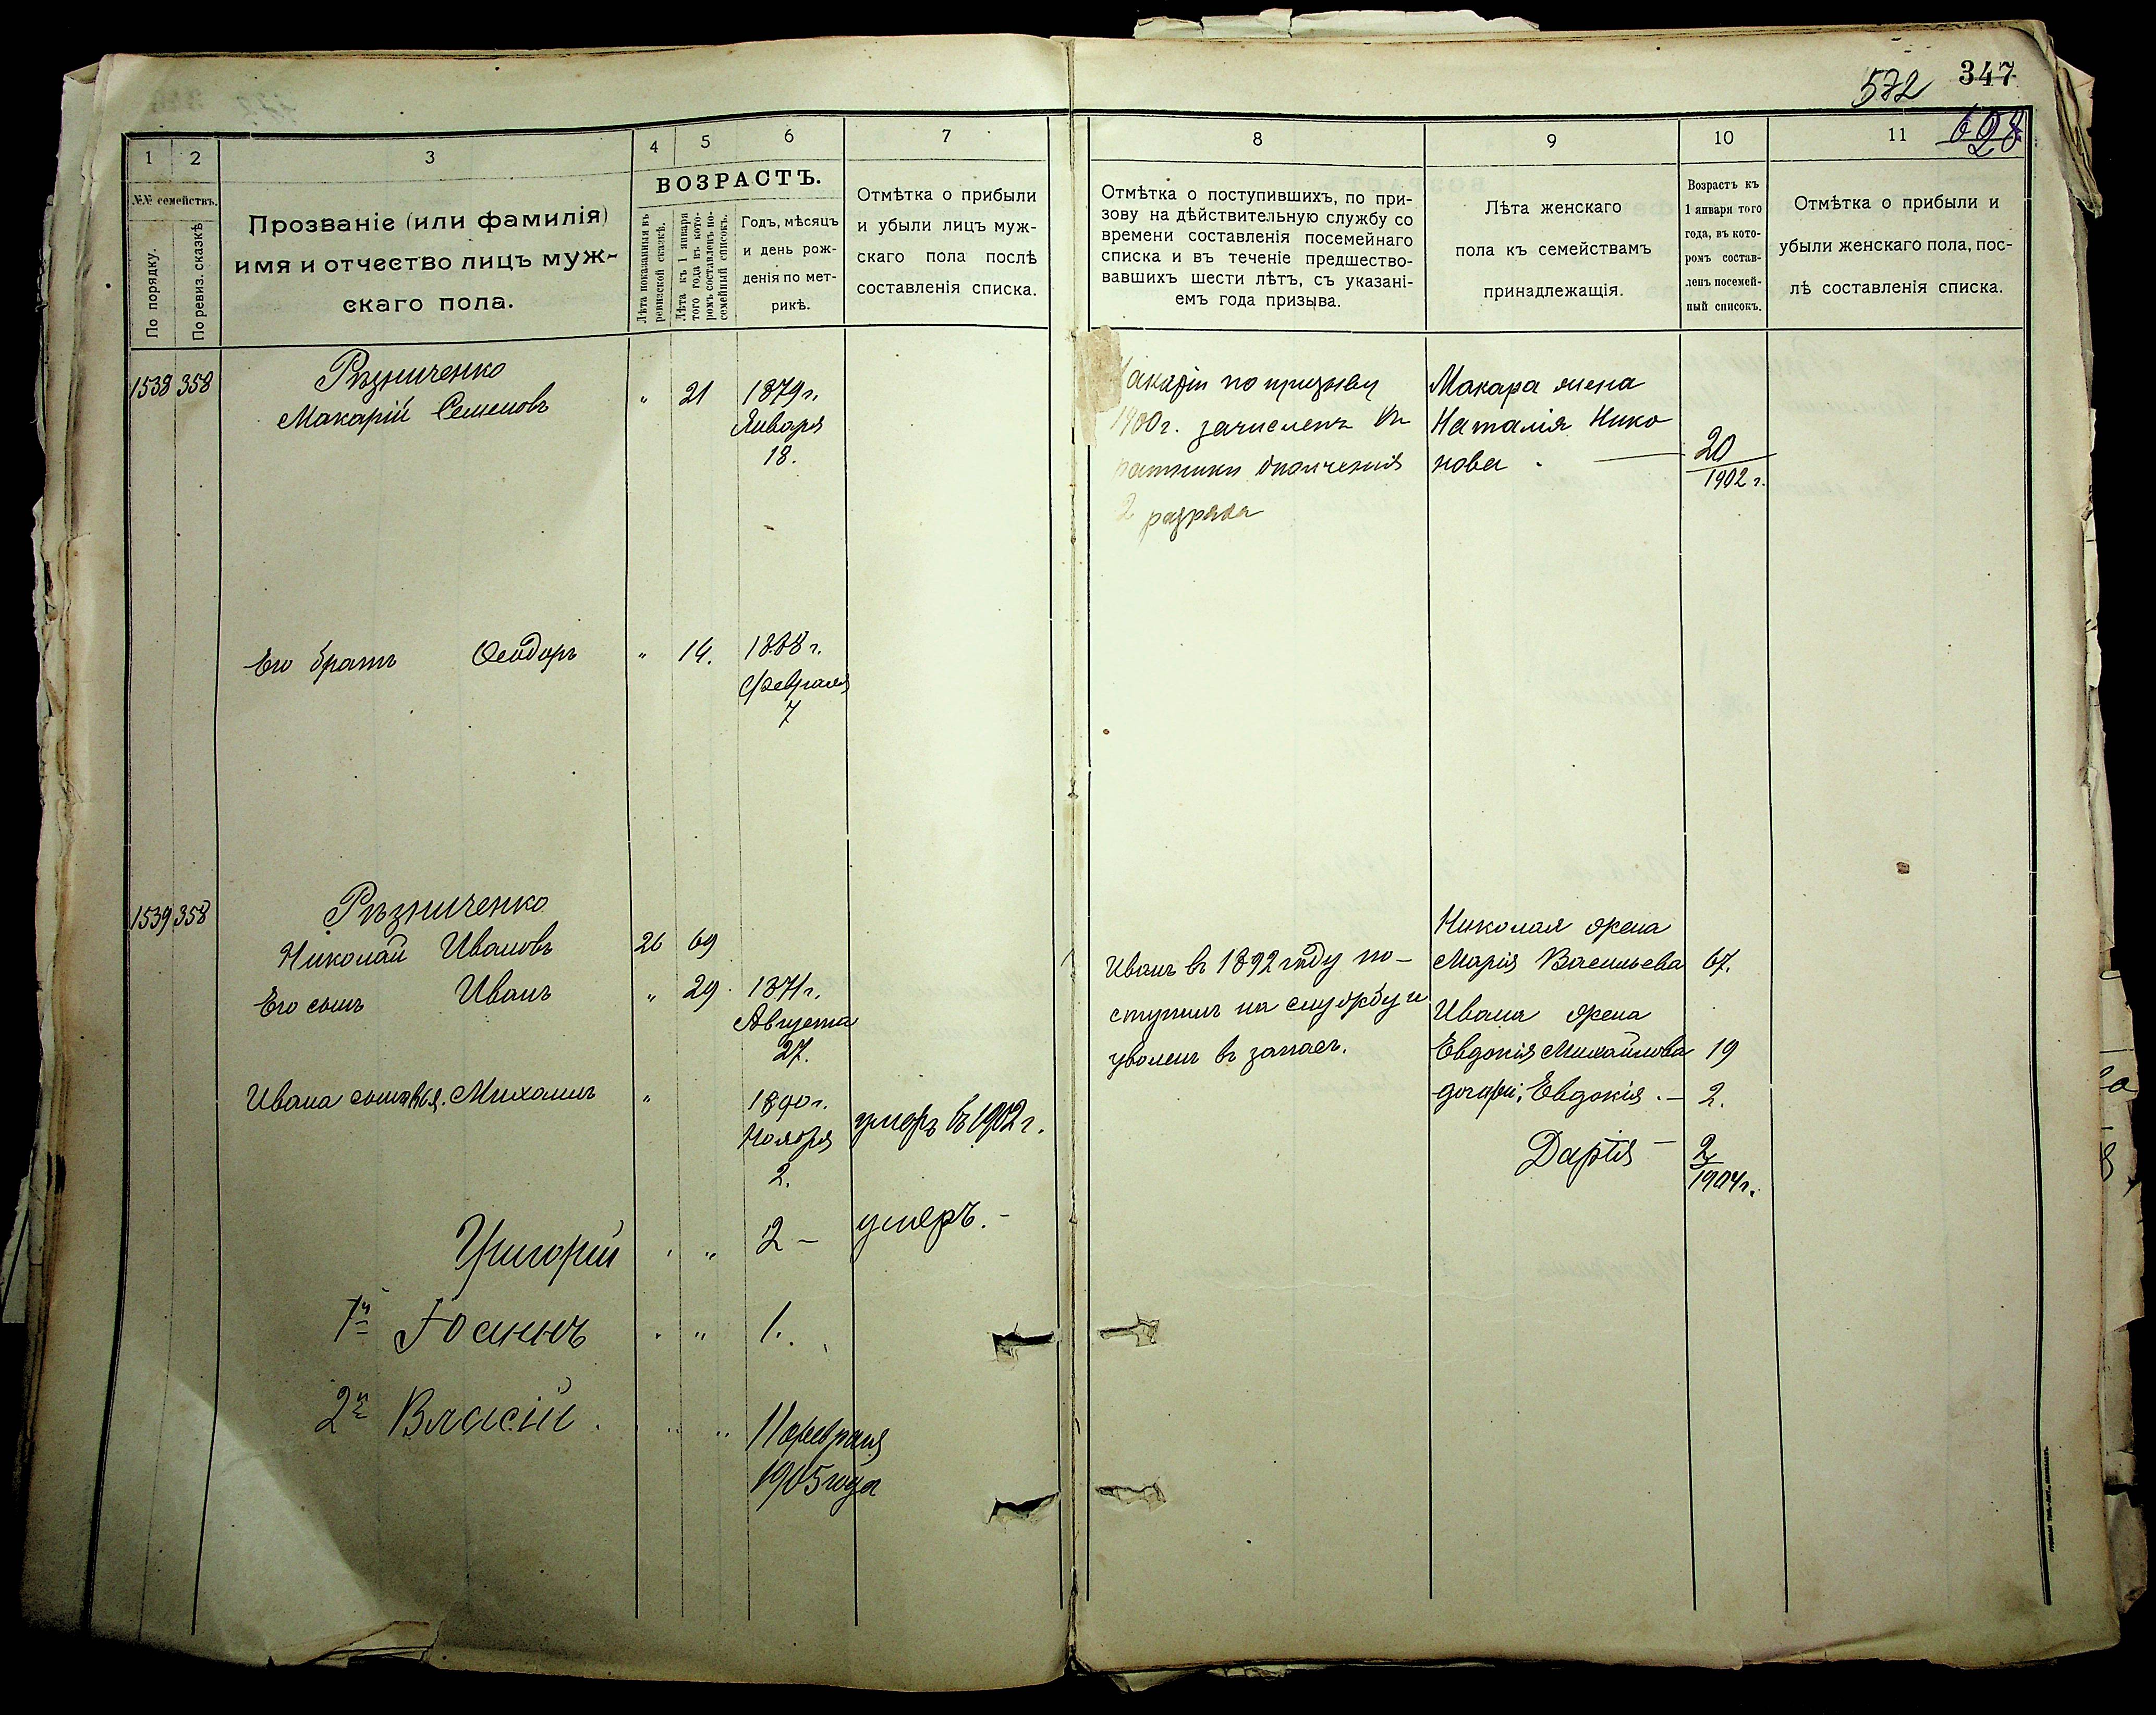 347
572
628
1
2
3
4
5
6
7
8
9
10
11
№№ семействъ.
По порядку.
По ревиз. сказкѣ
Прозваніе (или фамилія)
имя и отчество лицъ муж-
скаго пола.
ВОЗРАСТЪ.
Лѣта показанныя въ
ревизской сказкѣ.
Лѣта къ 1 января
того года въ кото-
ромъ составленъ по-
семейный списокъ.
Годъ, мѣсяцъ
и день рож-
денія по мет-
рикѣ.
Отмѣтка о прибыли
и убыли лицъ муж-
скаго пола послѣ
составленія списка.
Отмѣтка о поступившихъ, по при-
зову на дѣйствительную службу со
времени составленія посемейнаго
списка и въ теченіе предшество-
вавшихъ шести лѣтъ, съ указані-
емъ года призыва.
Лѣта женскаго
пола къ семействамъ
принадлежащія.
Возрастъ къ
1 января того
года, въ кото-
ромъ состав-
ленъ посемей-
ный списокъ.
Отмѣтка о прибыли и
убыли женскаго пола, пос-
лѣ составленія списка.
1538 358
Рѣзниченко
Макарій Семеновъ
" 21 1879 г.
Января
18.
Макарій по призыву
1900 г. зачисленъ въ
ратники ополченія
2 разряда
Макара жена
Наталія Нико
нова — 20
1902 г.
Его братъ Ѳеодоръ " 14. 1888 г.
Февраля
7
1539 358
Рѣзниченко
Николай Ивановъ 26 69
Его сынъ Иванъ " 29. 1871 г.
Августа
27.
Иванъ въ 1892 году по-
ступилъ на службу и
уволенъ въ запасъ.
Николая жена
Марія Васильева 67.
Ивана жена
Евдокія Михайлова 19
дочери: Евдокія. — 2.
Дарія — 2
1904 г.
Ивана сыновья. Михаилъ "
1890 г.
Ноября
2.
умеръ въ 1902 г.
Григорій " " 2 — умеръ. —
1й Іоаннъ " " 1.
2й Власій. " " 11 февраля
1905 года